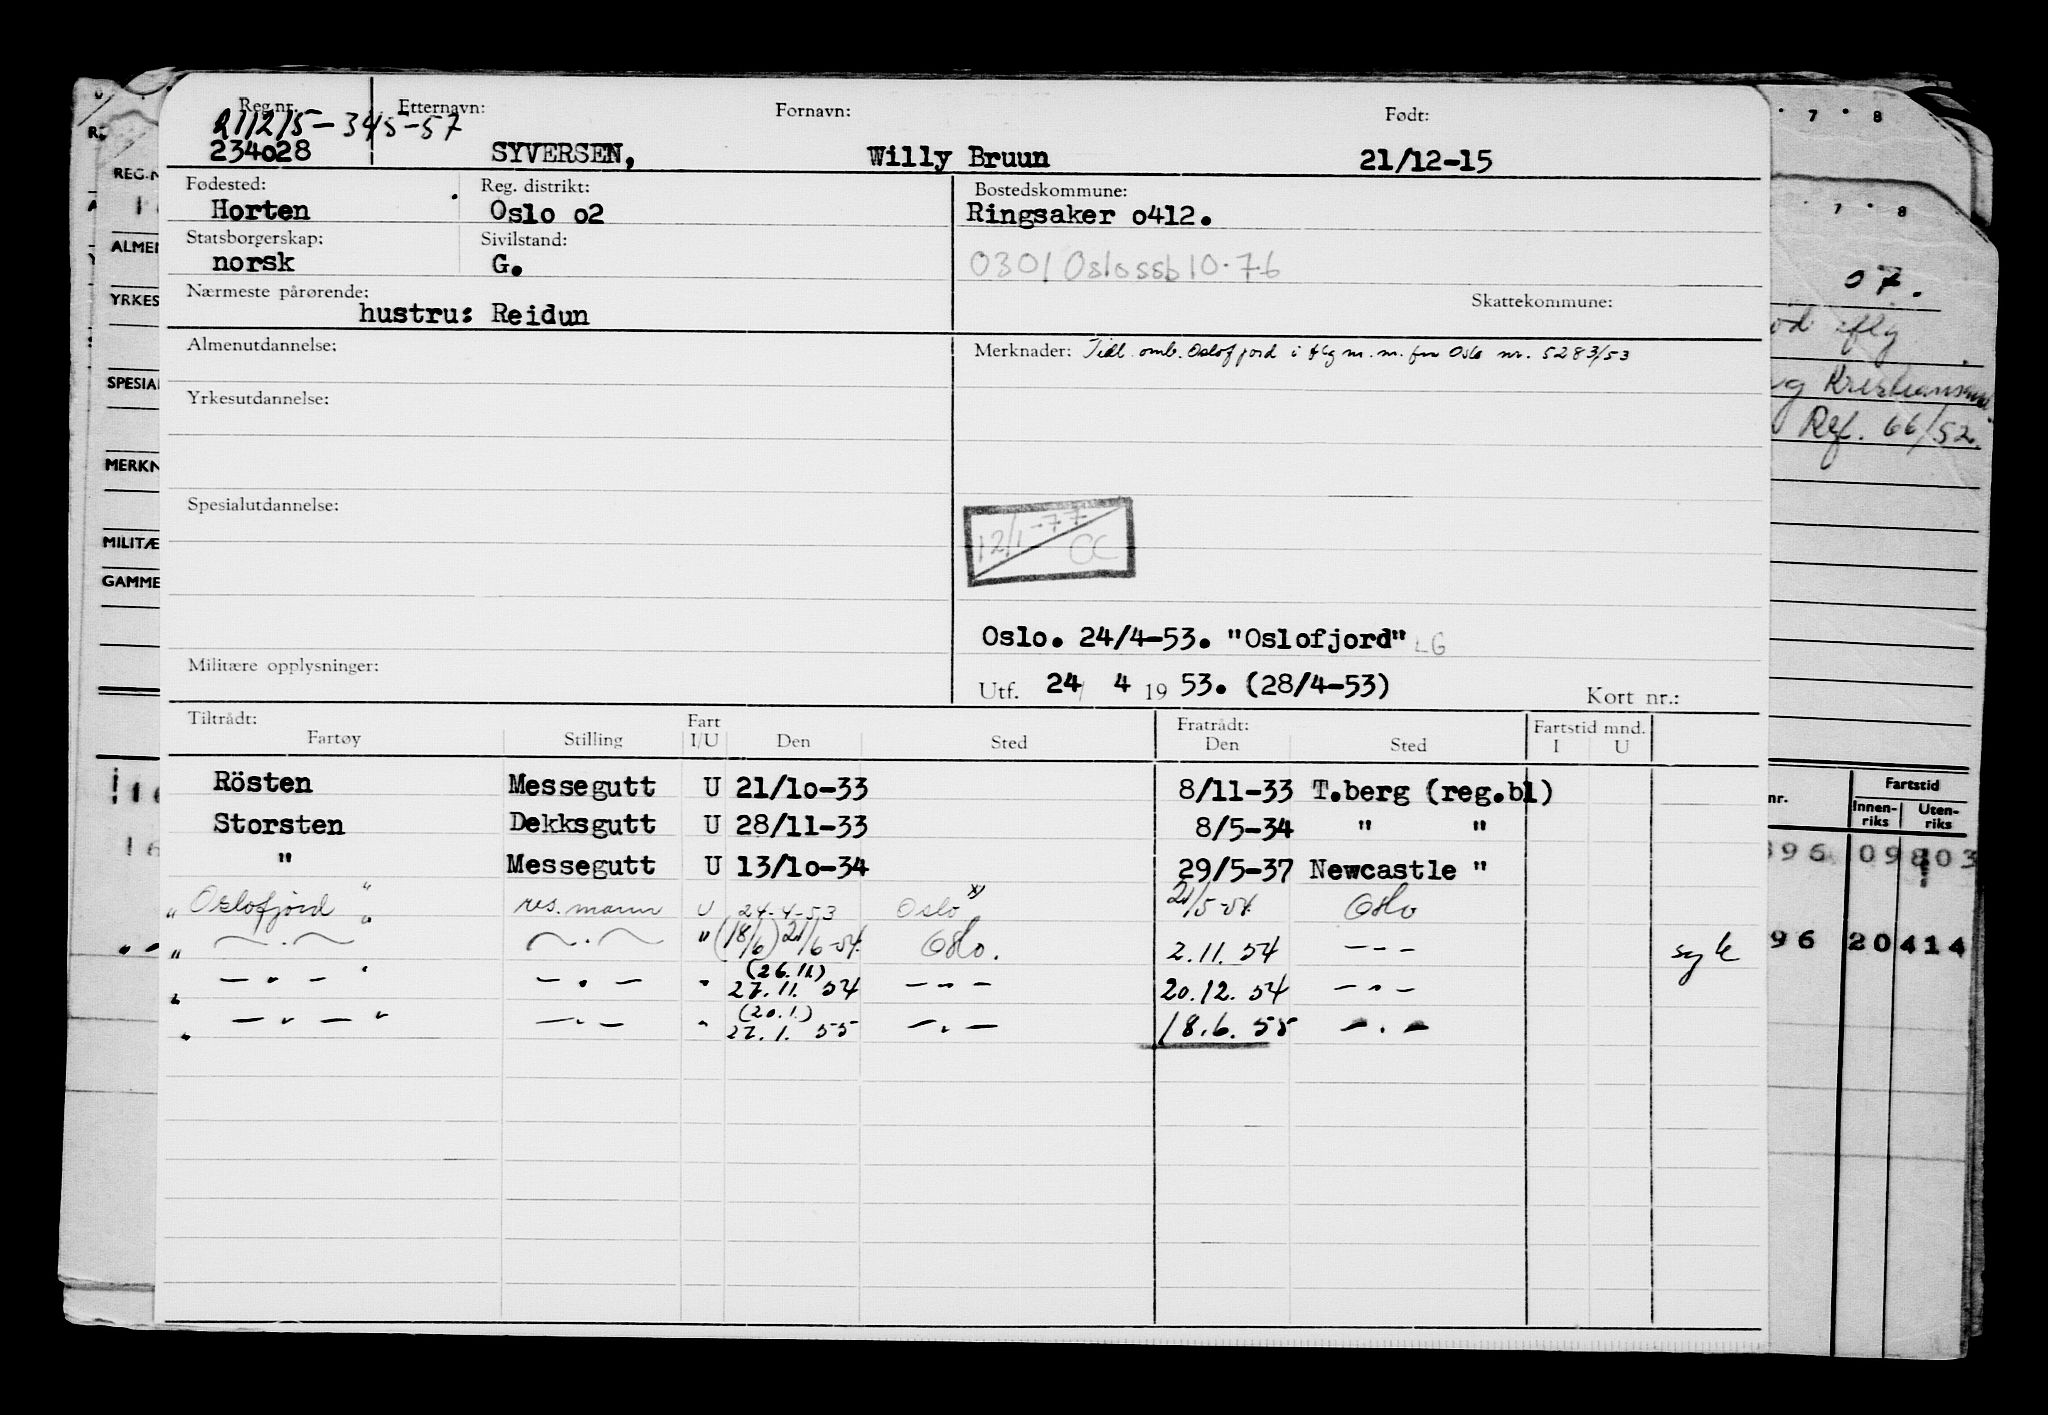 Reg.nr. Etternavn: Fornavn: Født:
234028 SYVERSEN, Willy Bruun 21/12-15
Fødested: Reg. distrikt: Bostedskommune:
Horten Oslo o2 Ringsaker o412.
Statsborgerskap: Sivilstand:
norsk G. 0301 Oslo ssb 10.76
Nærmeste pårørende: Skattekommune:
hustru: Reidun
Almenutdannelse: Merknader: Tidl. omb. Oslofjord i flg m.m. fra Oslo nr. 5283/53
Yrkesutdannelse:
Spesialutdannelse:
12/1-77
Oslo. 24/4-53. "Oslofjord" LG
Militære opplysninger:
Utf. 24/ 4 19 53. (28/4-53) Kort nr.:
Tiltrådt: Fart Fratrådt: Fartstid mnd.
Fartøy Stilling I/U Den Sted Den Sted I U
Rösten Messegutt U 21/1o-33 8/11-33 T.berg (reg.bl)
Storsten Dekksgutt U 28/11-33 8/5-34 " "
" Messegutt U 13/1o-34 29/5-37 Newcastle "
" Oslofjord " res.mann U 24-4-53 Oslo x) 21/5-54 Oslo
" — . — " — . — " (18/6) 21/6-54 Oslo. 2.11.54 – – – syk
" — . — " — . — " (26.11.) 27.11.54 – . – 20.12.54 – . –
" — . — " — . — " (20.1.) 27.1.55 – . – 18.6.55 – . –
REG.N
ALMEN
YRKES
SPESIAL
MERKN
MILITÆ
GAMME
7 8
7 8
07.
iflg
Kristiansund
Ref. 66/52.
nr. Fartstid
Innen-riks Uten-riks
396 09 803
96 20 414